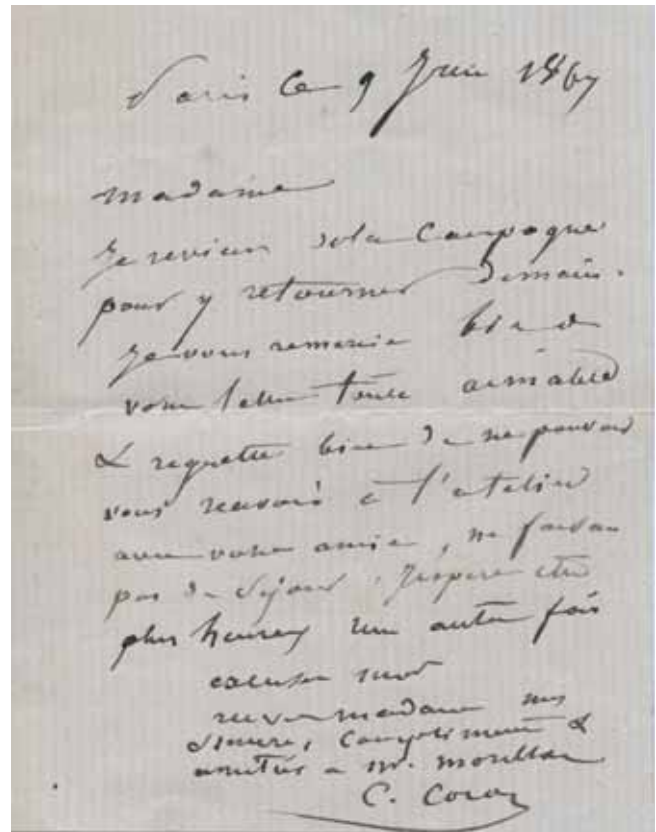 Paris Ce 9 Juin 1867
madame
Je reviens de la Campagne
pour y retourner Demain.
Je vous remercie bien de
votre lettre toute aimable
& regrette bien de ne pouvoir
vous recevoir à l'atelier
avec votre amie, ne faisant
pas de séjour, J'espère être
plus heureux une autre fois
excusez moi
recevez madame mes
sincères compliments &
amitiés à mr.
C. Corot